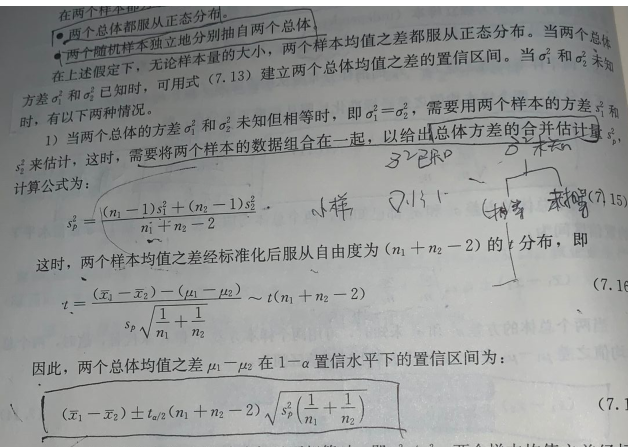 在两个样本都
• 两个总体都服从正态分布。
• 两个随机样本独立地分别抽自两个总体
在上述假定下，无论样本量的大小，两个样本均值之差都服从正态分布。当两个总体
方差 σ₁² 和 σ₂² 已知时，可用式（7.13）建立两个总体均值之差的置信区间。当 σ₁² 和 σ₂² 未知
时，有以下两种情况。
1）当两个总体的方差 σ₁² 和 σ₂² 未知但相等时，即 σ₁²=σ₂²，需要用两个样本的方差 s₁² 和
s₂² 来估计，这时，需要将两个样本的数据组合在一起，以给出总体方差的合并估计量 sₚ²，
σ²已知 σ²未知
计算公式为：
sₚ² = ((n₁−1)s₁²+(n₂−1)s₂²)/(n₁+n₂−2)
小样
相等
(7.15)
这时，两个样本均值之差经标准化后服从自由度为 (n₁+n₂−2) 的 t 分布，即
t = ((x̄₁−x̄₂)−(μ₁−μ₂))/(sₚ√(1/n₁+1/n₂)) ~ t(n₁+n₂−2)
(7.16
因此，两个总体均值之差 μ₁−μ₂ 在 1−α 置信水平下的置信区间为：
(x̄₁−x̄₂)±t_{α/2}(n₁+n₂−2)√(sₚ²(1/n₁+1/n₂))
(7.1